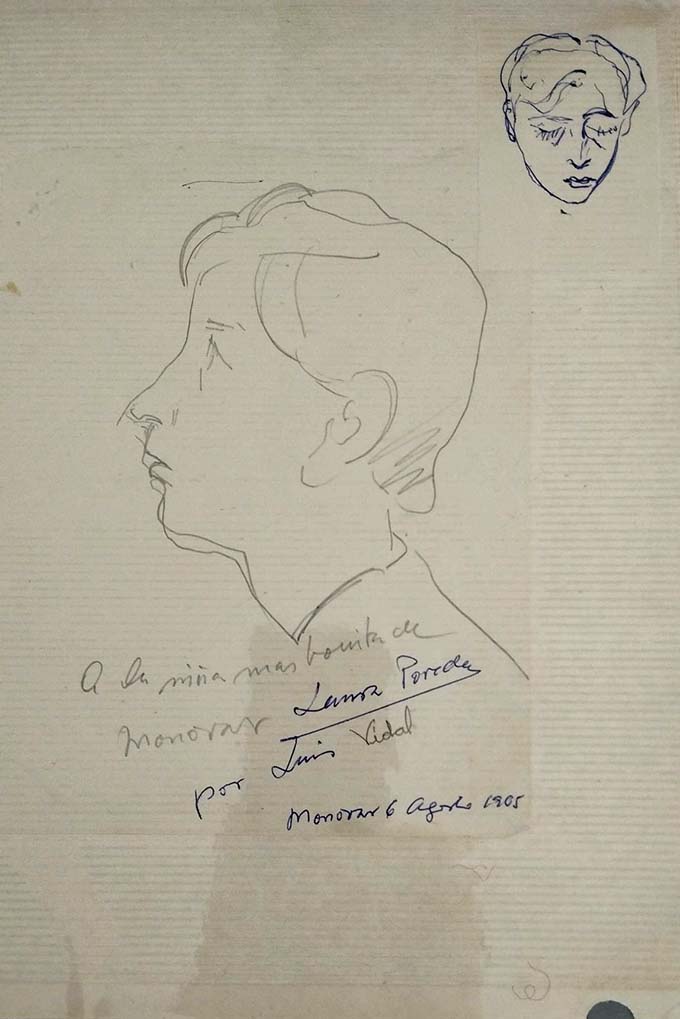 A la niña mas bonita de
Monovar Laura Poreda
por Luis Vidal
Monovar 6 Agosto 1905